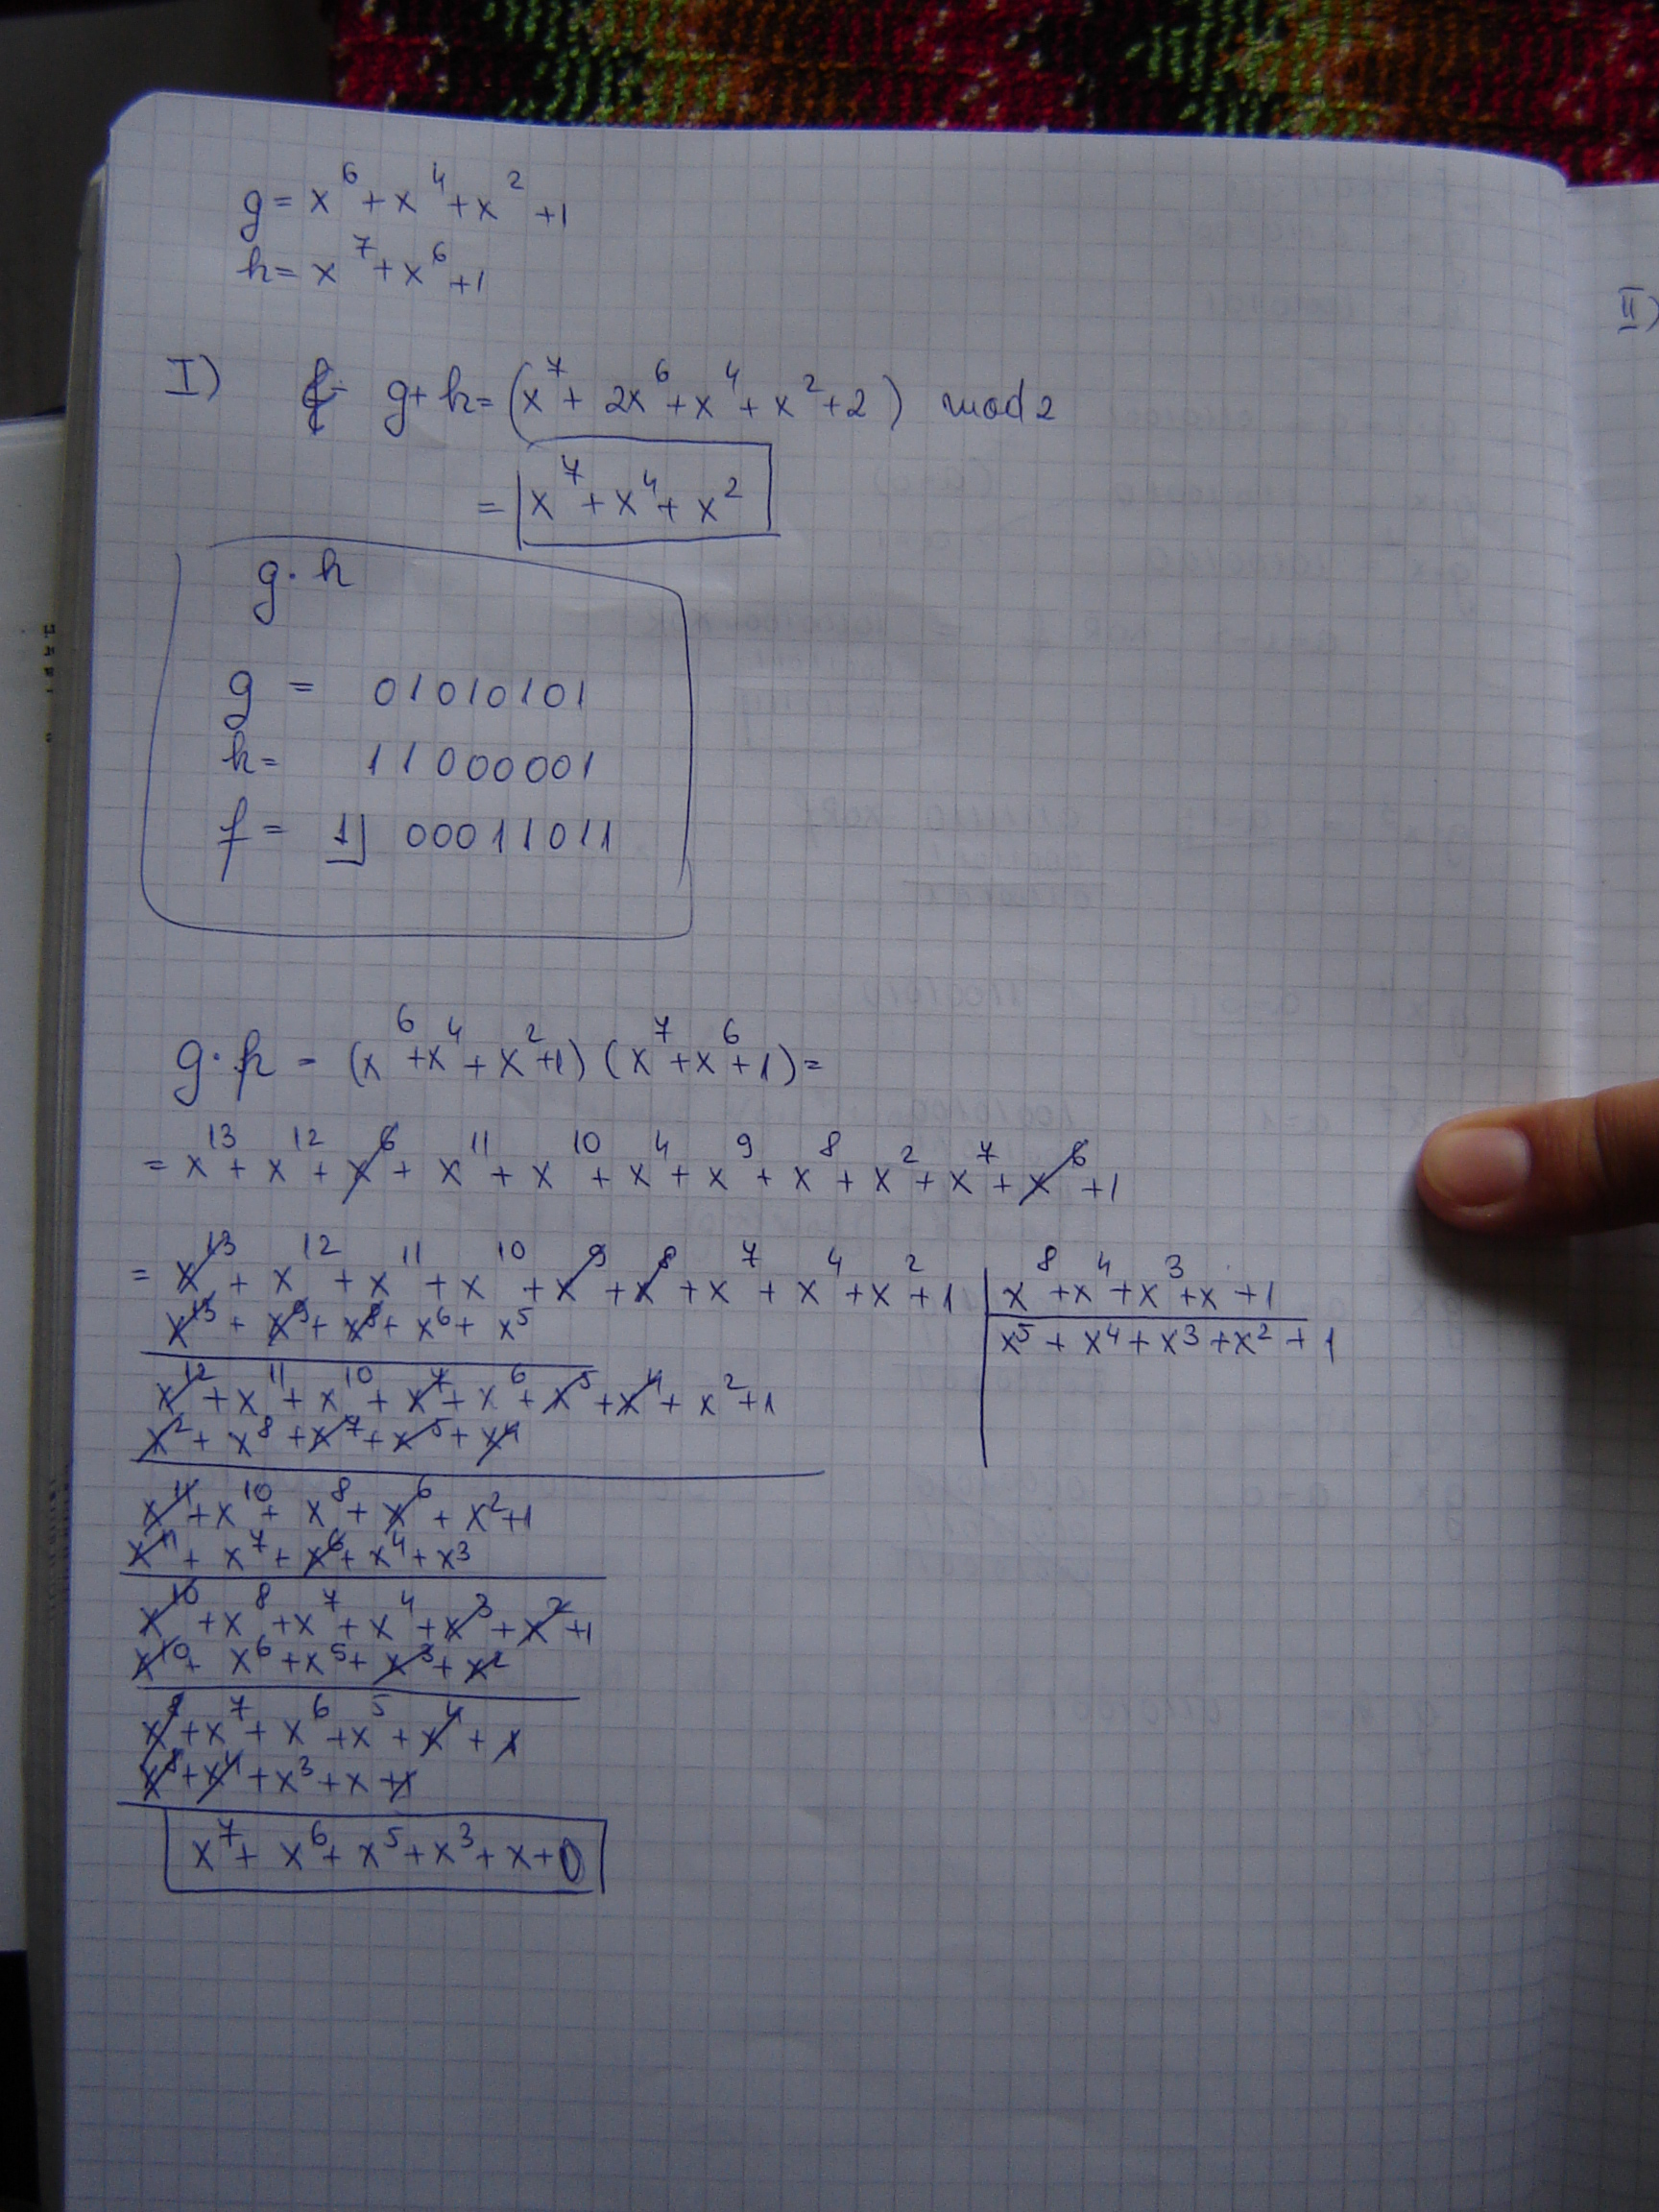 g = x⁶ + x⁴ + x² + 1
h = x⁷ + x⁶ + 1
I) g + h = (x⁷ + 2x⁶ + x⁴ + x² + 2) mod 2
= x⁷ + x⁴ + x²
g · h
g = 01010101
h = 11000001
f = 1] 00011011
g · h = (x⁶ + x⁴ + x² + 1) (x⁷ + x⁶ + 1) =
= x¹³ + x¹² + x⁶ + x¹¹ + x¹⁰ + x⁴ + x⁹ + x⁸ + x² + x⁷ + x⁶ + 1
= x¹³ + x¹² + x¹¹ + x¹⁰ + x⁹ + x⁸ + x⁷ + x⁴ + x² + 1 | x⁸ + x⁴ + x³ + x + 1
x¹³ + x⁹ + x⁸ + x⁶ + x⁵ | x⁵ + x⁴ + x³ + x² + 1
x¹² + x¹¹ + x¹⁰ + x⁷ + x⁶ + x⁵ + x⁴ + x² + 1
x² + x⁸ + x⁷ + x⁵ + x⁴
x¹¹ + x¹⁰ + x⁸ + x⁶ + x² + 1
x¹¹ + x⁷ + x⁶ + x⁴ + x³
x¹⁰ + x⁸ + x⁷ + x⁴ + x³ + x² + 1
x¹⁰ + x⁶ + x⁵ + x³ + x²
x⁸ + x⁷ + x⁶ + x⁵ + x⁴ + 1
x⁸ + x⁴ + x³ + x + 1
x⁷ + x⁶ + x⁵ + x³ + x + 0
II)